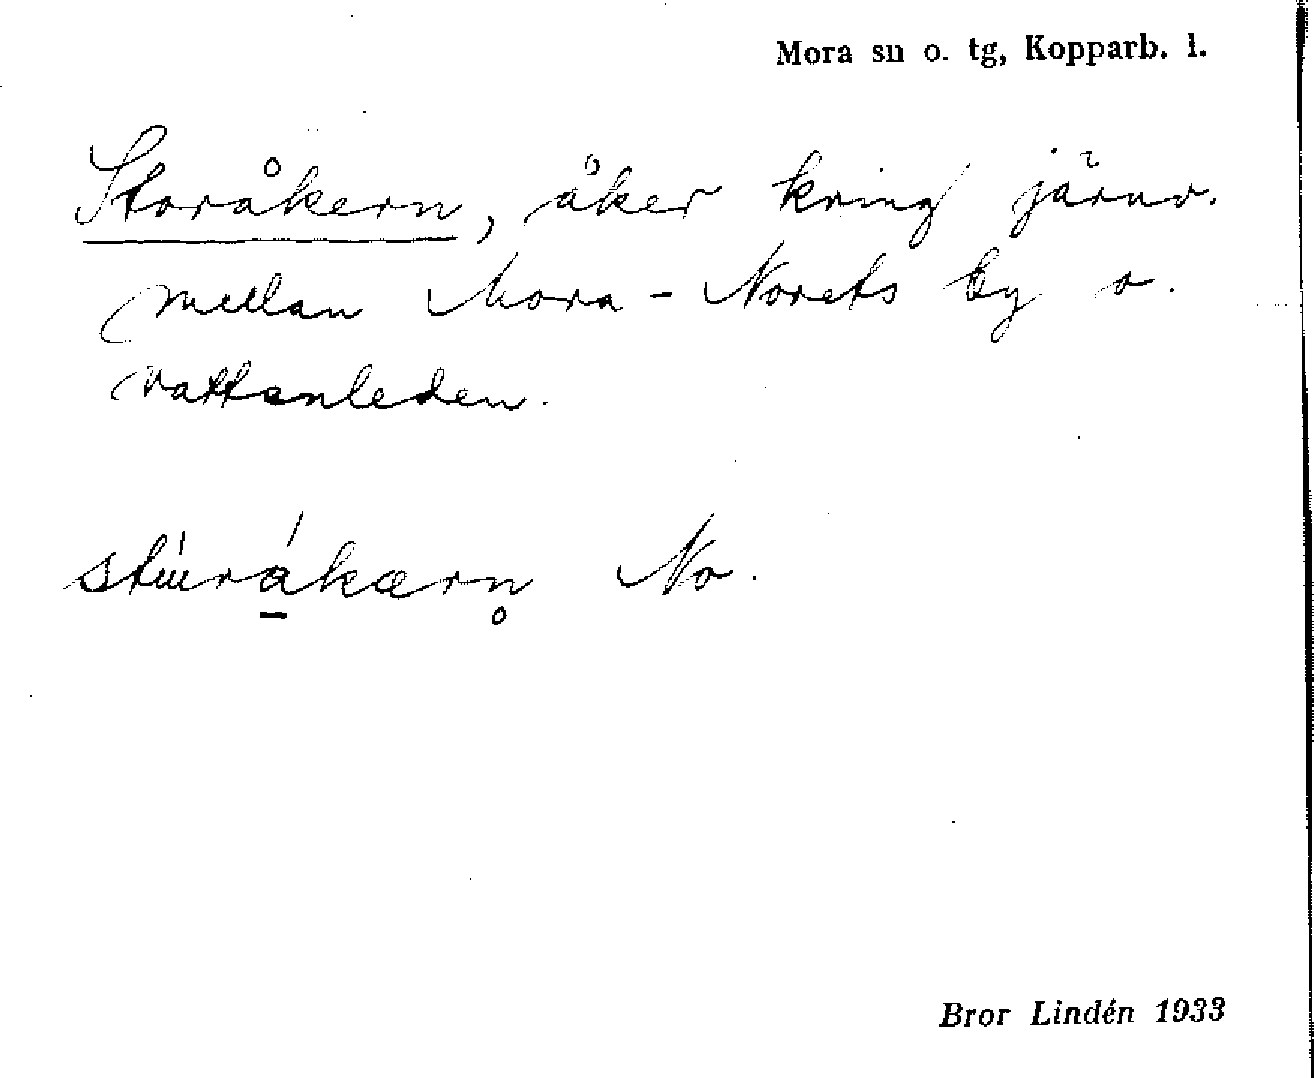 Mora sn o. tg, Kopparb. l.
Storåkern, åker kring järnv.
mellan Mora-Norets by o.
vattenleden.
stúu̇rá̱kærn̥ No.
Bror Lindén 1933